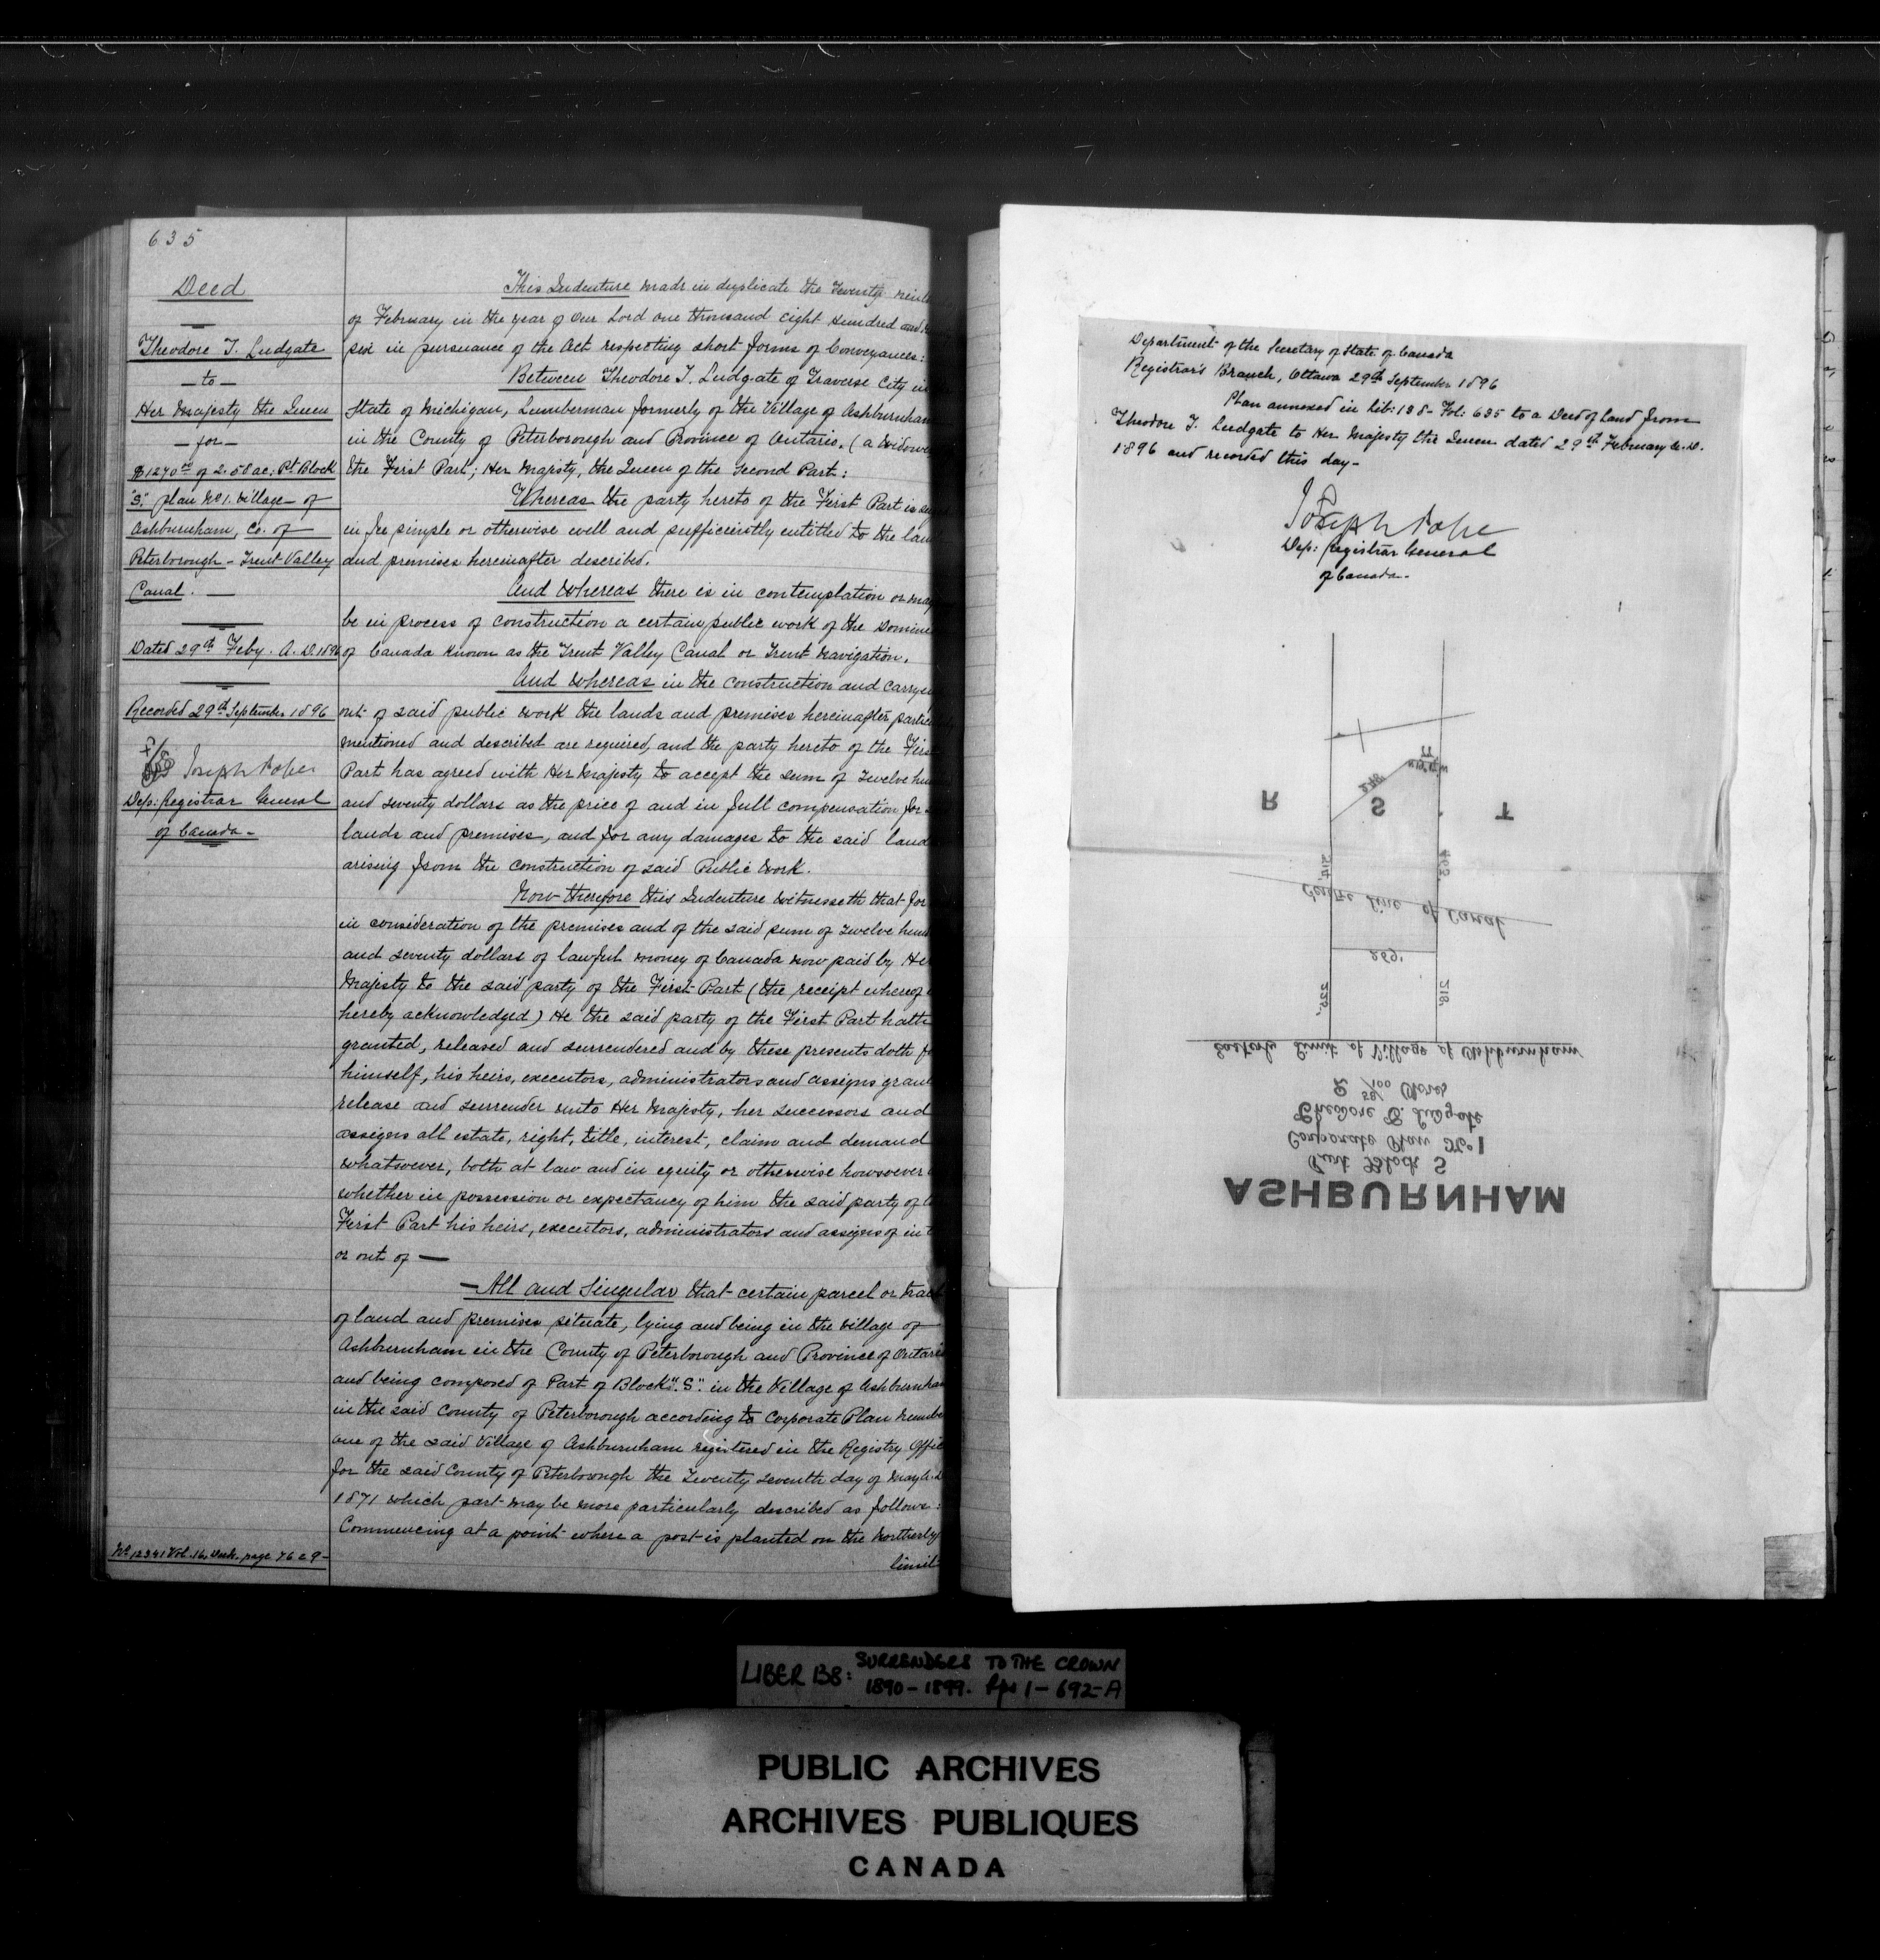 635
Deed
Theodore T. Ludgate
- to -
Her Majesty the Queen
- for -
$1270.00 of 2.58 ac: Pt Block
"S." plan No 1. Village - of
Ashburnham, Co. of
Peterborough - Trent Valley
Canal. -
Dated 29th Feby. A.D. 1896
Recorded 29th September 1896
Joseph Pope
Dep: Registrar General
of Canada -
No 12341 Vol. 16. Dock. page 7629 -
This Indenture made in duplicate the Twenty
of February in the year of Our Lord one thousand eight Hundred and
six in pursuance of the Act respecting short forms of Conveyances:
Between Theodore T. Ludgate of Traverse City in
State of Michigan, Lumberman formerly of the Village of Ashburnham
in the County of Peterborough and Province of Ontario. (a Widower
the First Part; Her Majesty, the Queen of the Second Part:
Whereas the party hereto of the First Part is
in fee simple or otherwise well and sufficiently entitled to the
and premises hereinafter described.
And Whereas there is in contemplation or may
be in process of construction a certain public work of the
of Canada known as the Trent Valley Canal or Trent Navigation.
And Whereas in the construction and
out of said public work the lands and premises hereinafter
mentioned and described are required, and the party hereto of the First
Part has agreed with Her Majesty to accept the sum of Twelve
and seventy dollars as the price of and in full compensation for
lands and premises, and for any damages to the said land
arising from the construction of said Public Work.
Now therefore this Indenture Witnesseth that for
in consideration of the premises and of the said sum of Twelve
and seventy dollars of lawful money of Canada now paid by
Majesty to the said party of the First Part (the receipt whereof
hereby acknowledged) He the said party of the First Part hath
granted, released and surrendered and by these presents doth
himself, his heirs, executors, administrators and assigns
release and surrender unto Her Majesty, her successors and
assigns all estate, right, title, interest, claim and demand
whatsoever, both at law and in equity or otherwise howsoever
whether in possession or expectancy of him the said party of
First Part his heirs, executors, administrators and assigns of in
or out of -
- All and Singular that certain parcel or tract
of land and premises situate, lying and being in the village of
Ashburnham in the County of Peterborough and Province of Ontario
and being composed of Part of Block "S". in the Village of Ashburnham
in the said County of Peterborough according to Corporate Plan
one of the said Village of Ashburnham registered in the Registry Office
for the said County of Peterborough the Twenty seventh day of May A.D.
1871 which part may be more particularly described as follows:
Commencing at a point where a post is planted on the Northerly
limit
Department of the Secretary of State of Canada
Registrar's Branch, Ottawa 29th September 1896
Plan annexed in Lib: 138 - Fol: 635 to a Deed of Land from
Theodore T. Ludgate to Her Majesty the Queen dated 29th February A.D.
1896 and recorded this day -
Joseph Pope
Dep: Registrar General
of Canada -
278
R S T
Centre line of Canal
269'
225' 218'
Easterly Limit of Village of Ashburnham
2 58/100 Acres
Theodore T. Ludgate
Corporate Plan No 1
Part Block S
ASHBURNHAM
LIBER 138: SURRENDERS TO THE CROWN
1890-1899. Pps 1-692-A
PUBLIC ARCHIVES
ARCHIVES PUBLIQUES
CANADA